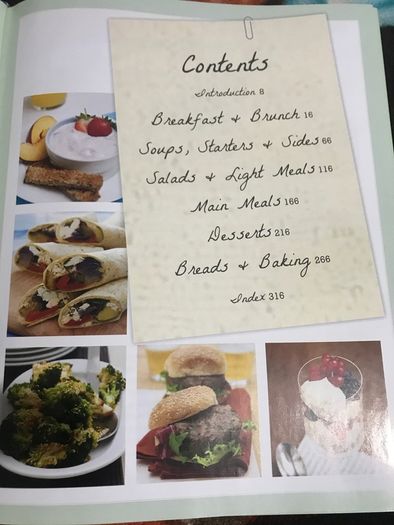 Contents
Introduction 8
Breakfast & Brunch 16
Soups, Starters & Sides 66
Salads & Light Meals 116
Main Meals 166
Desserts 216
Breads & Baking 266
Index 316